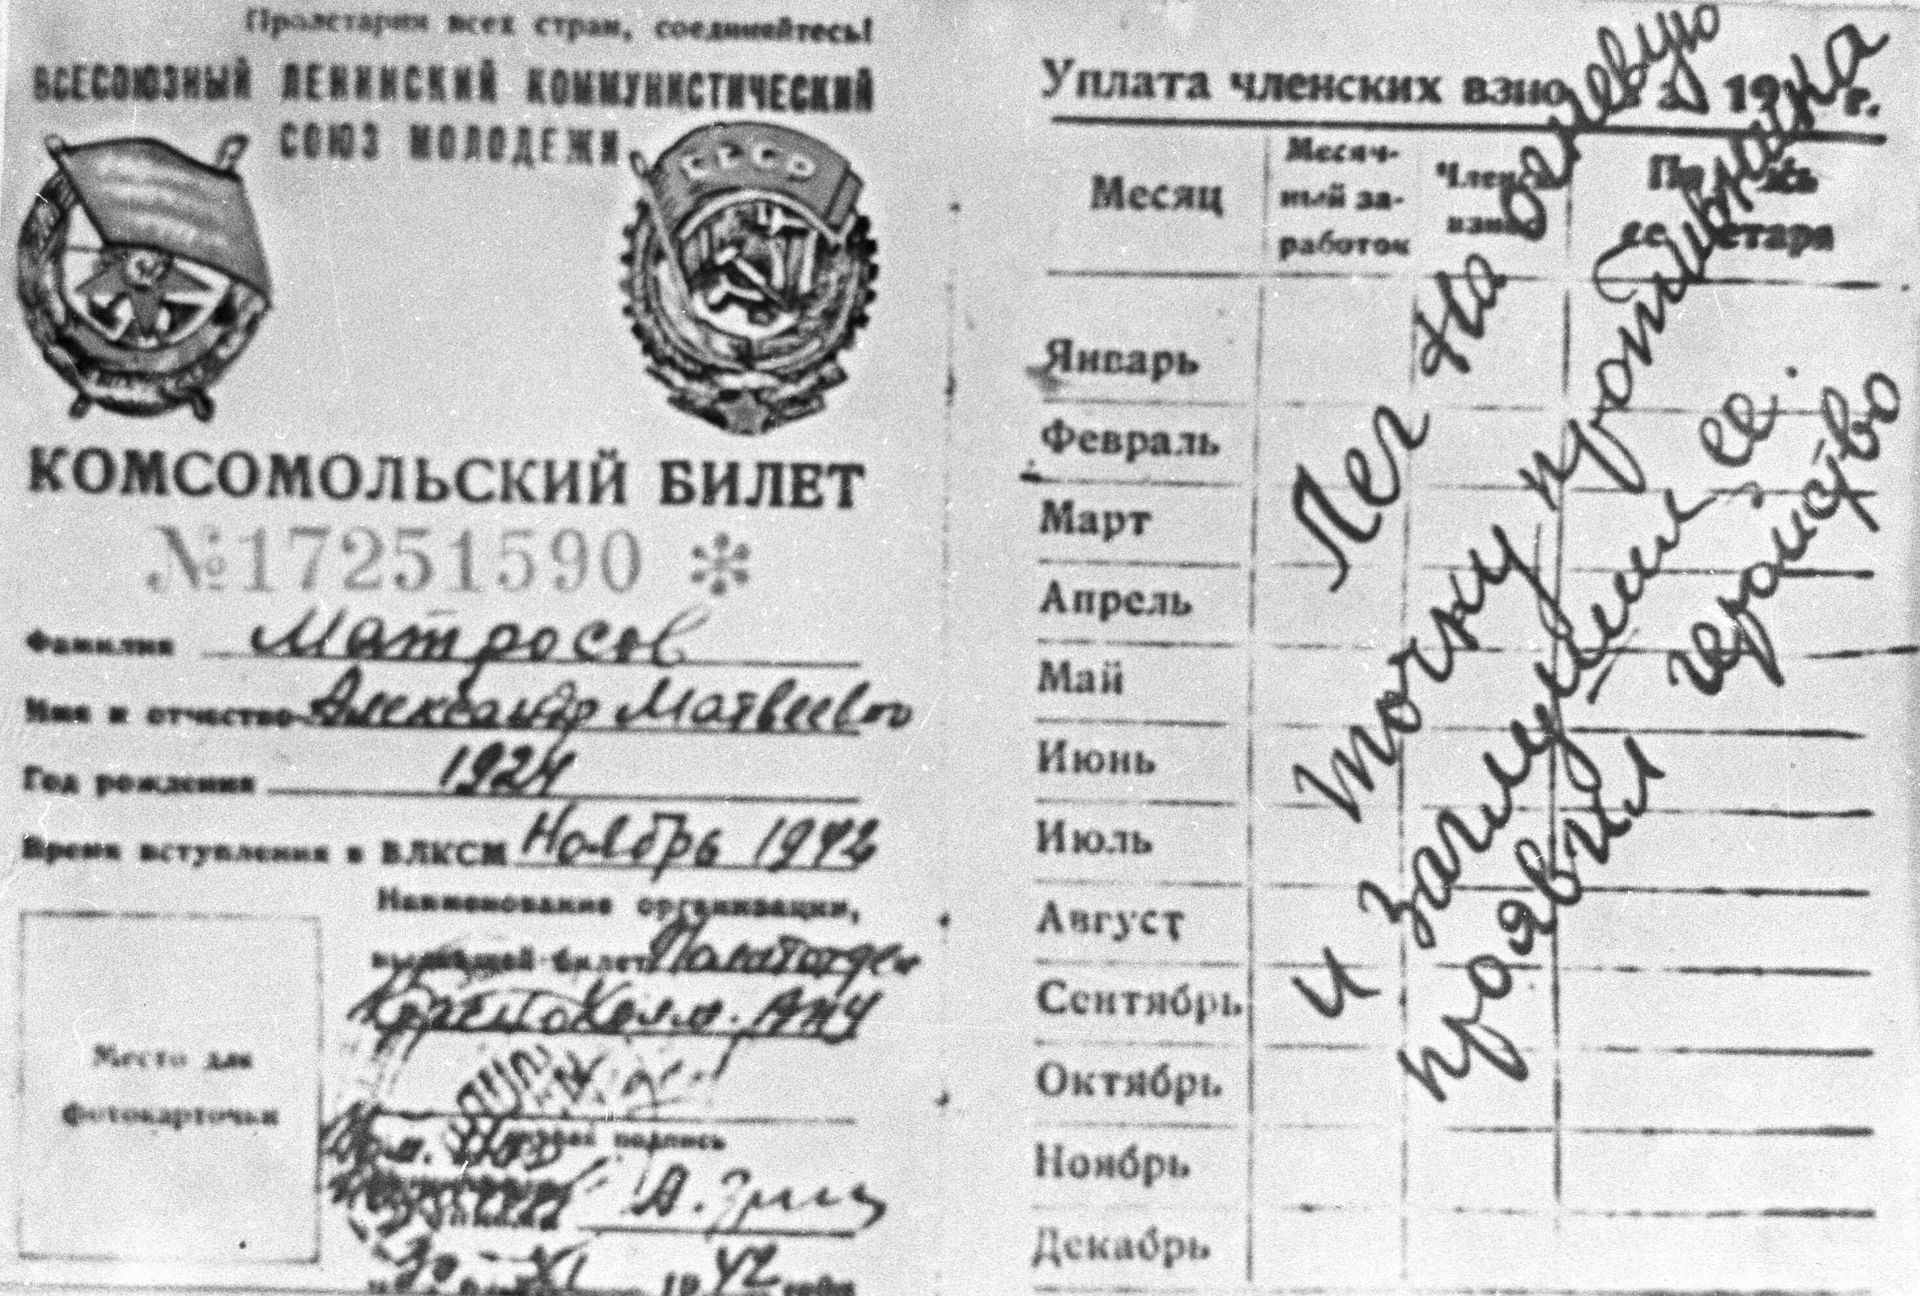 Пролетарии всех стран, соединяйтесь!
ВСЕСОЮЗНЫЙ ЛЕНИНСКИЙ КОММУНИСТИЧЕСКИЙ
СОЮЗ МОЛОДЕЖИ
СССР
КОМСОМОЛЬСКИЙ БИЛЕТ
№17251590 *
Фамилия Матросов
Имя и отчество Александр Матвеевич
Год рождения 1924
Время вступления в ВЛКСМ Ноябрь 1942
Наименование организации,
выдавшей билет Политотдел
Место для
фотокарточки
подпись
30 XI 1942 года
Уплата членских взносов за 19 г.
Месяц
Месяч-
ный за-
работок
Член.
взнос
Подпись
секретаря
Январь
Февраль
Март
Апрель
Май
Июнь
Июль
Август
Сентябрь
Октябрь
Ноябрь
Декабрь
Лег на огневую
точку противника
и заглушил ее.
проявил геройство